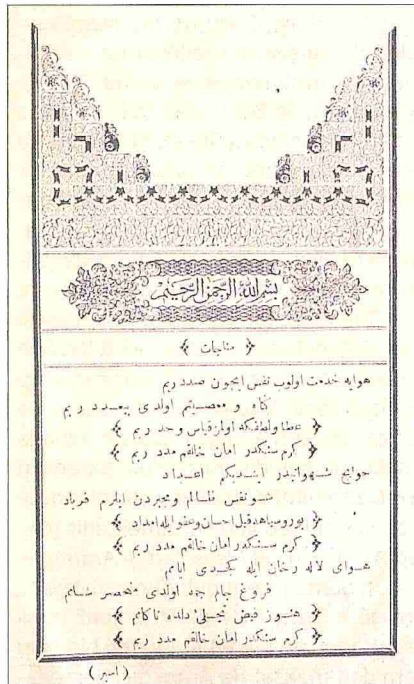 بسم الله الرحمن الرحيم
﴿ مناجات ﴾
هوایه خدمت اولوب نفس ایچون صددریم
كناه و معصیتم اولدی بیعدد ریم
﴿ عطا ولطفكه اولمز قیاس و حد ریم ﴾
﴿ كرم سنكدر امان خالقم مدد ریم ﴾
حوایج شهواتیدر ایتدیكم اعتیاد
شو نفس ظالم و مجردن ایلرم فریاد
﴿ بوروسیاهه قیل احسان و عفو ایله امداد ﴾
﴿ كرم سنكدر امان خالقم مدد ریم ﴾
هوای لاله رخان ایله كچدی ایامم
فروغ جام جم اولدی منحصر شامم
﴿ هنوز فیض تجلی دلده ناكامم ﴾
﴿ كرم سنكدر امان خالقم مدد ریم ﴾
(اسیر)